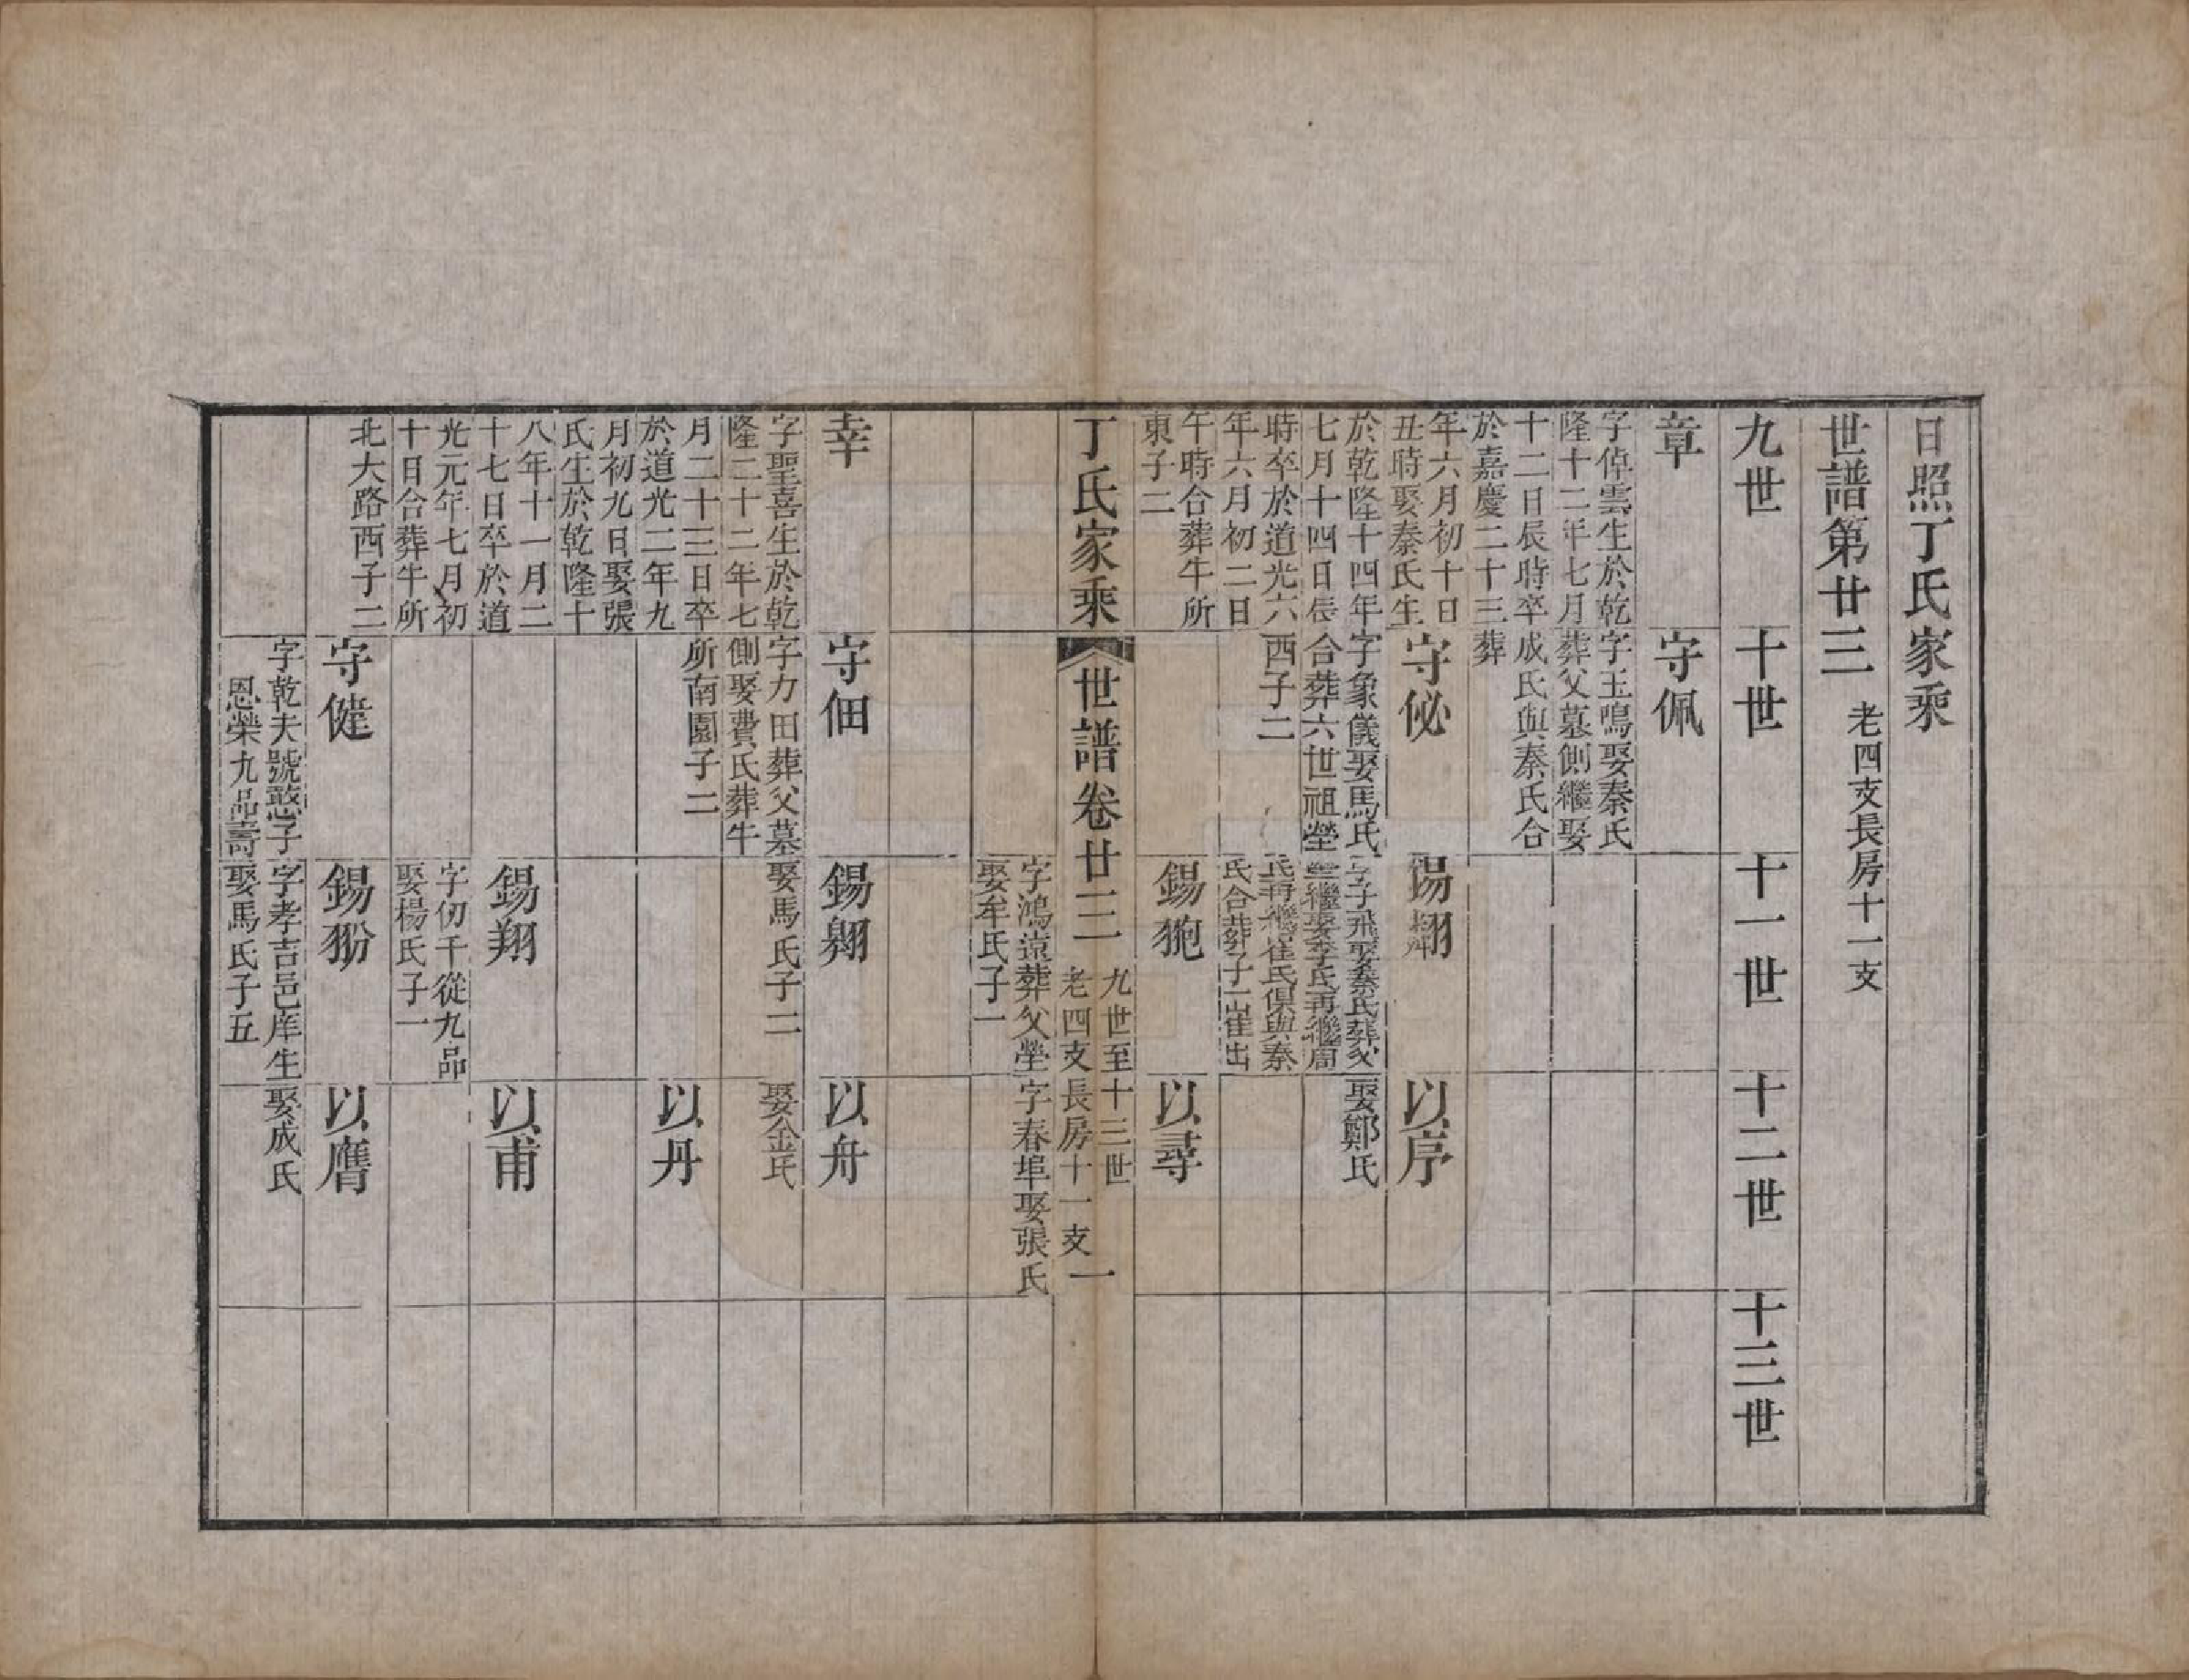 日照丁氏家乘
世譜第廿三 老四支長房十一支
九世 十世 十一世 十二世 十三世
章
字倬雲生於乾
隆十二年七月
十二日辰時卒
於嘉慶二十三
年六月初十日
丑時娶秦氏生
於乾隆十四年
七月十四日辰
時卒於道光六
年六月初二日
午時合葬牛所
東子二
守佩
字玉鳴娶秦氏
葬父墓側繼娶
成氏與秦氏合
葬
守佖
字象儀娶馬氏
合葬六世祖塋
西子二
錫翊
字子飛娶秦氏葬父
塋繼娶李氏再繼周
氏再繼崔氏俱與秦
氏合葬子一崔出
以序
娶鄭氏
錫
以尋
丁氏家乘 世譜卷廿三 九世至十三世
老四支長房十一支 一
字鴻遠葬父塋
娶牟氏子一
字春埠娶張氏
幸
字聖喜生於乾
隆二十二年七
月二十三日卒
於道光二年九
月初九日娶張
氏生於乾隆十
八年十一月二
十七日卒於道
光元年七月初
十日合葬牛所
北大路西子二
守佃
字力田葬父墓
側娶費氏葬牛
所南園子二
錫翱
娶馬氏子二
以舟
娶金氏
以丹
錫翔
字仞千從九品
娶楊氏子一
以甫
守健
字乾夫號憨子
恩榮九品壽
錫
字孝吉邑庠生
娶馬氏子五
以膺
娶成氏